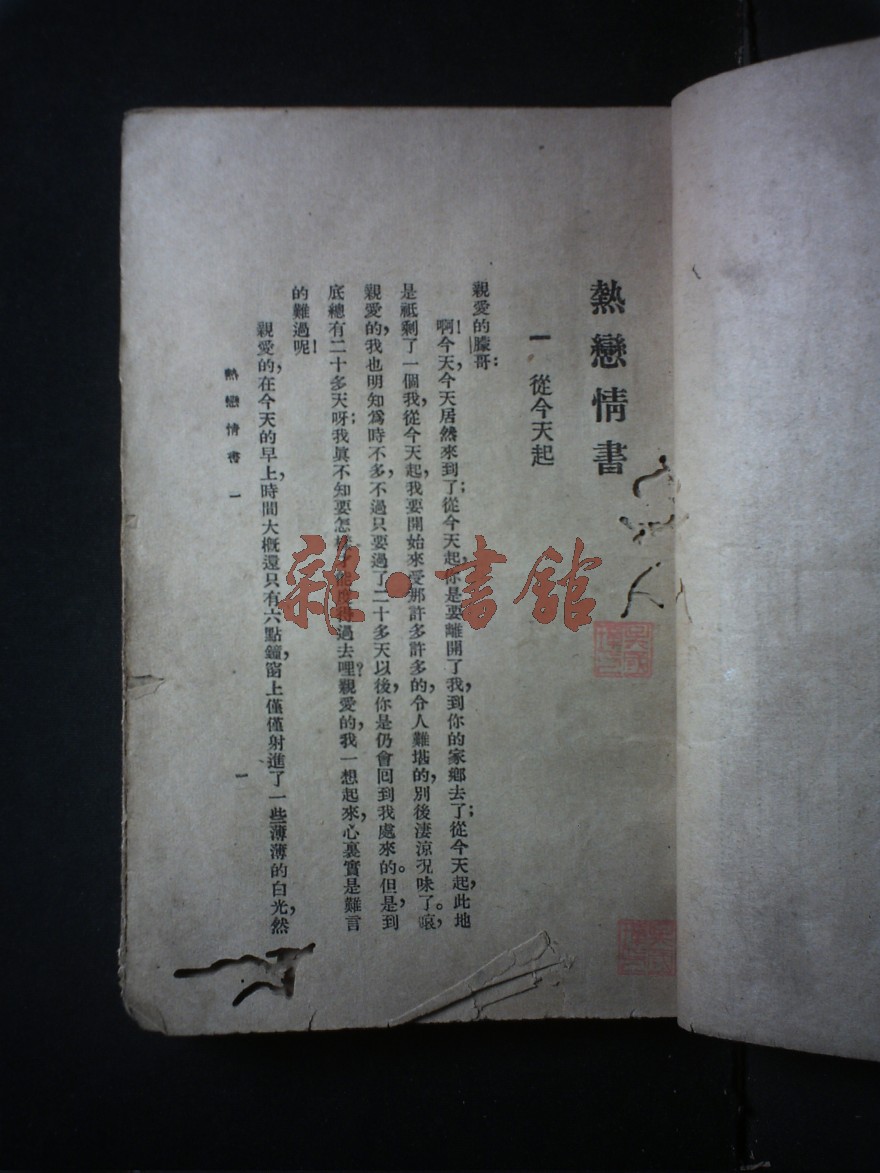 熱戀情書
一 從今天起
親愛的朦哥:
啊!今天,今天居然來到了;從今天起,你是要離開了我,到你的家鄉去了;從今天起,此地
是祇剩了一個我,從今天起,我要開始來受那許多許多的,令人難堪的,別後淒涼況味了。噯,
親愛的,我也明知為時不多,不過只要過了二十多天以後,你是仍會回到我處來的。但是,到
底總有二十多天呀;我眞不知要怎樣才能度得過去哩?親愛的,我一想起來,心裏實是難言
的難過呢!
親愛的,在今天的早上,時間大概還只有六點鐘,窗上僅僅射進了一些薄薄的白光,然
熱戀情書 一
一
雜·書館